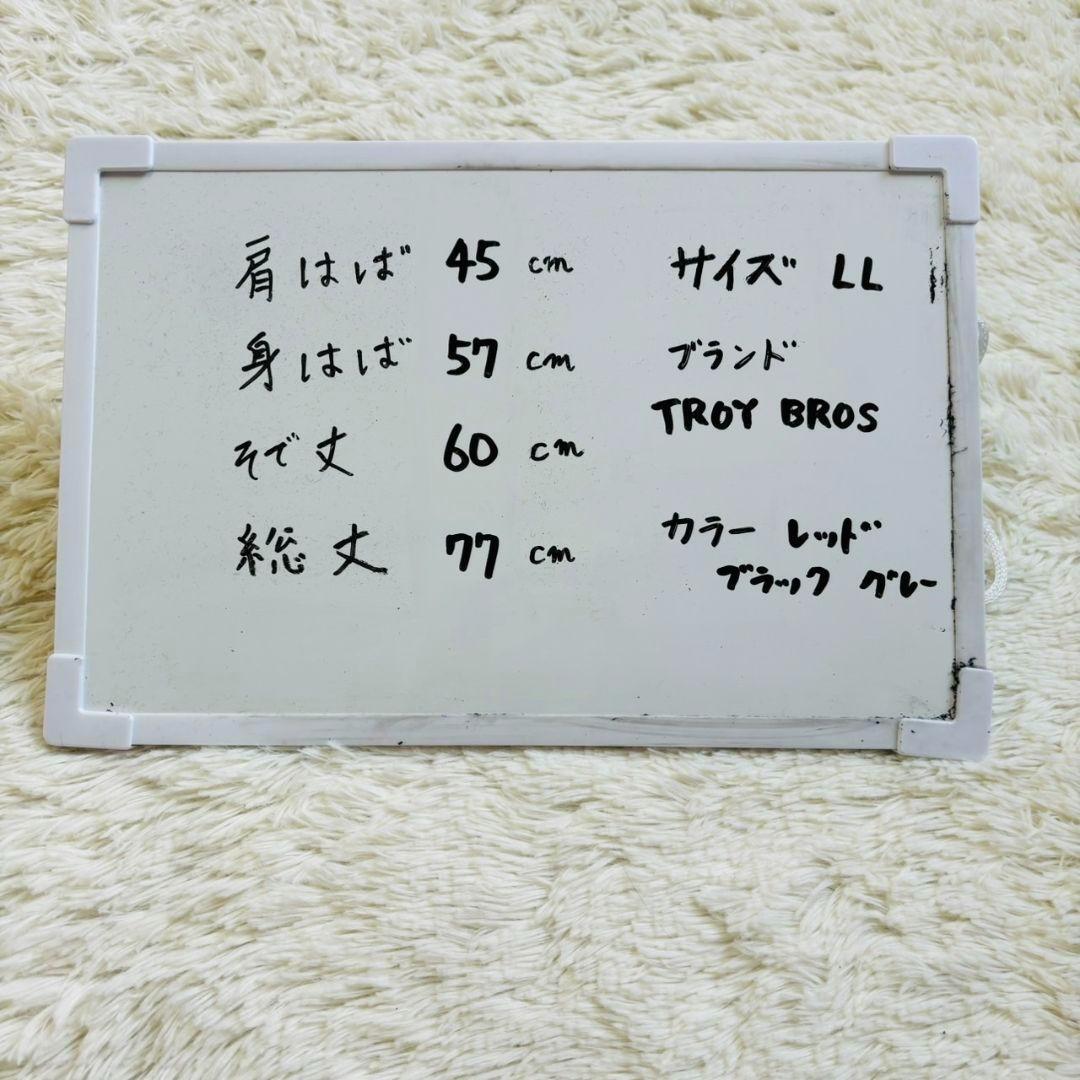 肩はば 45 cm
身はば 57 cm
そで丈 60 cm
総丈 77 cm
サイズ LL
ブランド
TROY BROS
カラー レッド
ブラック グレー